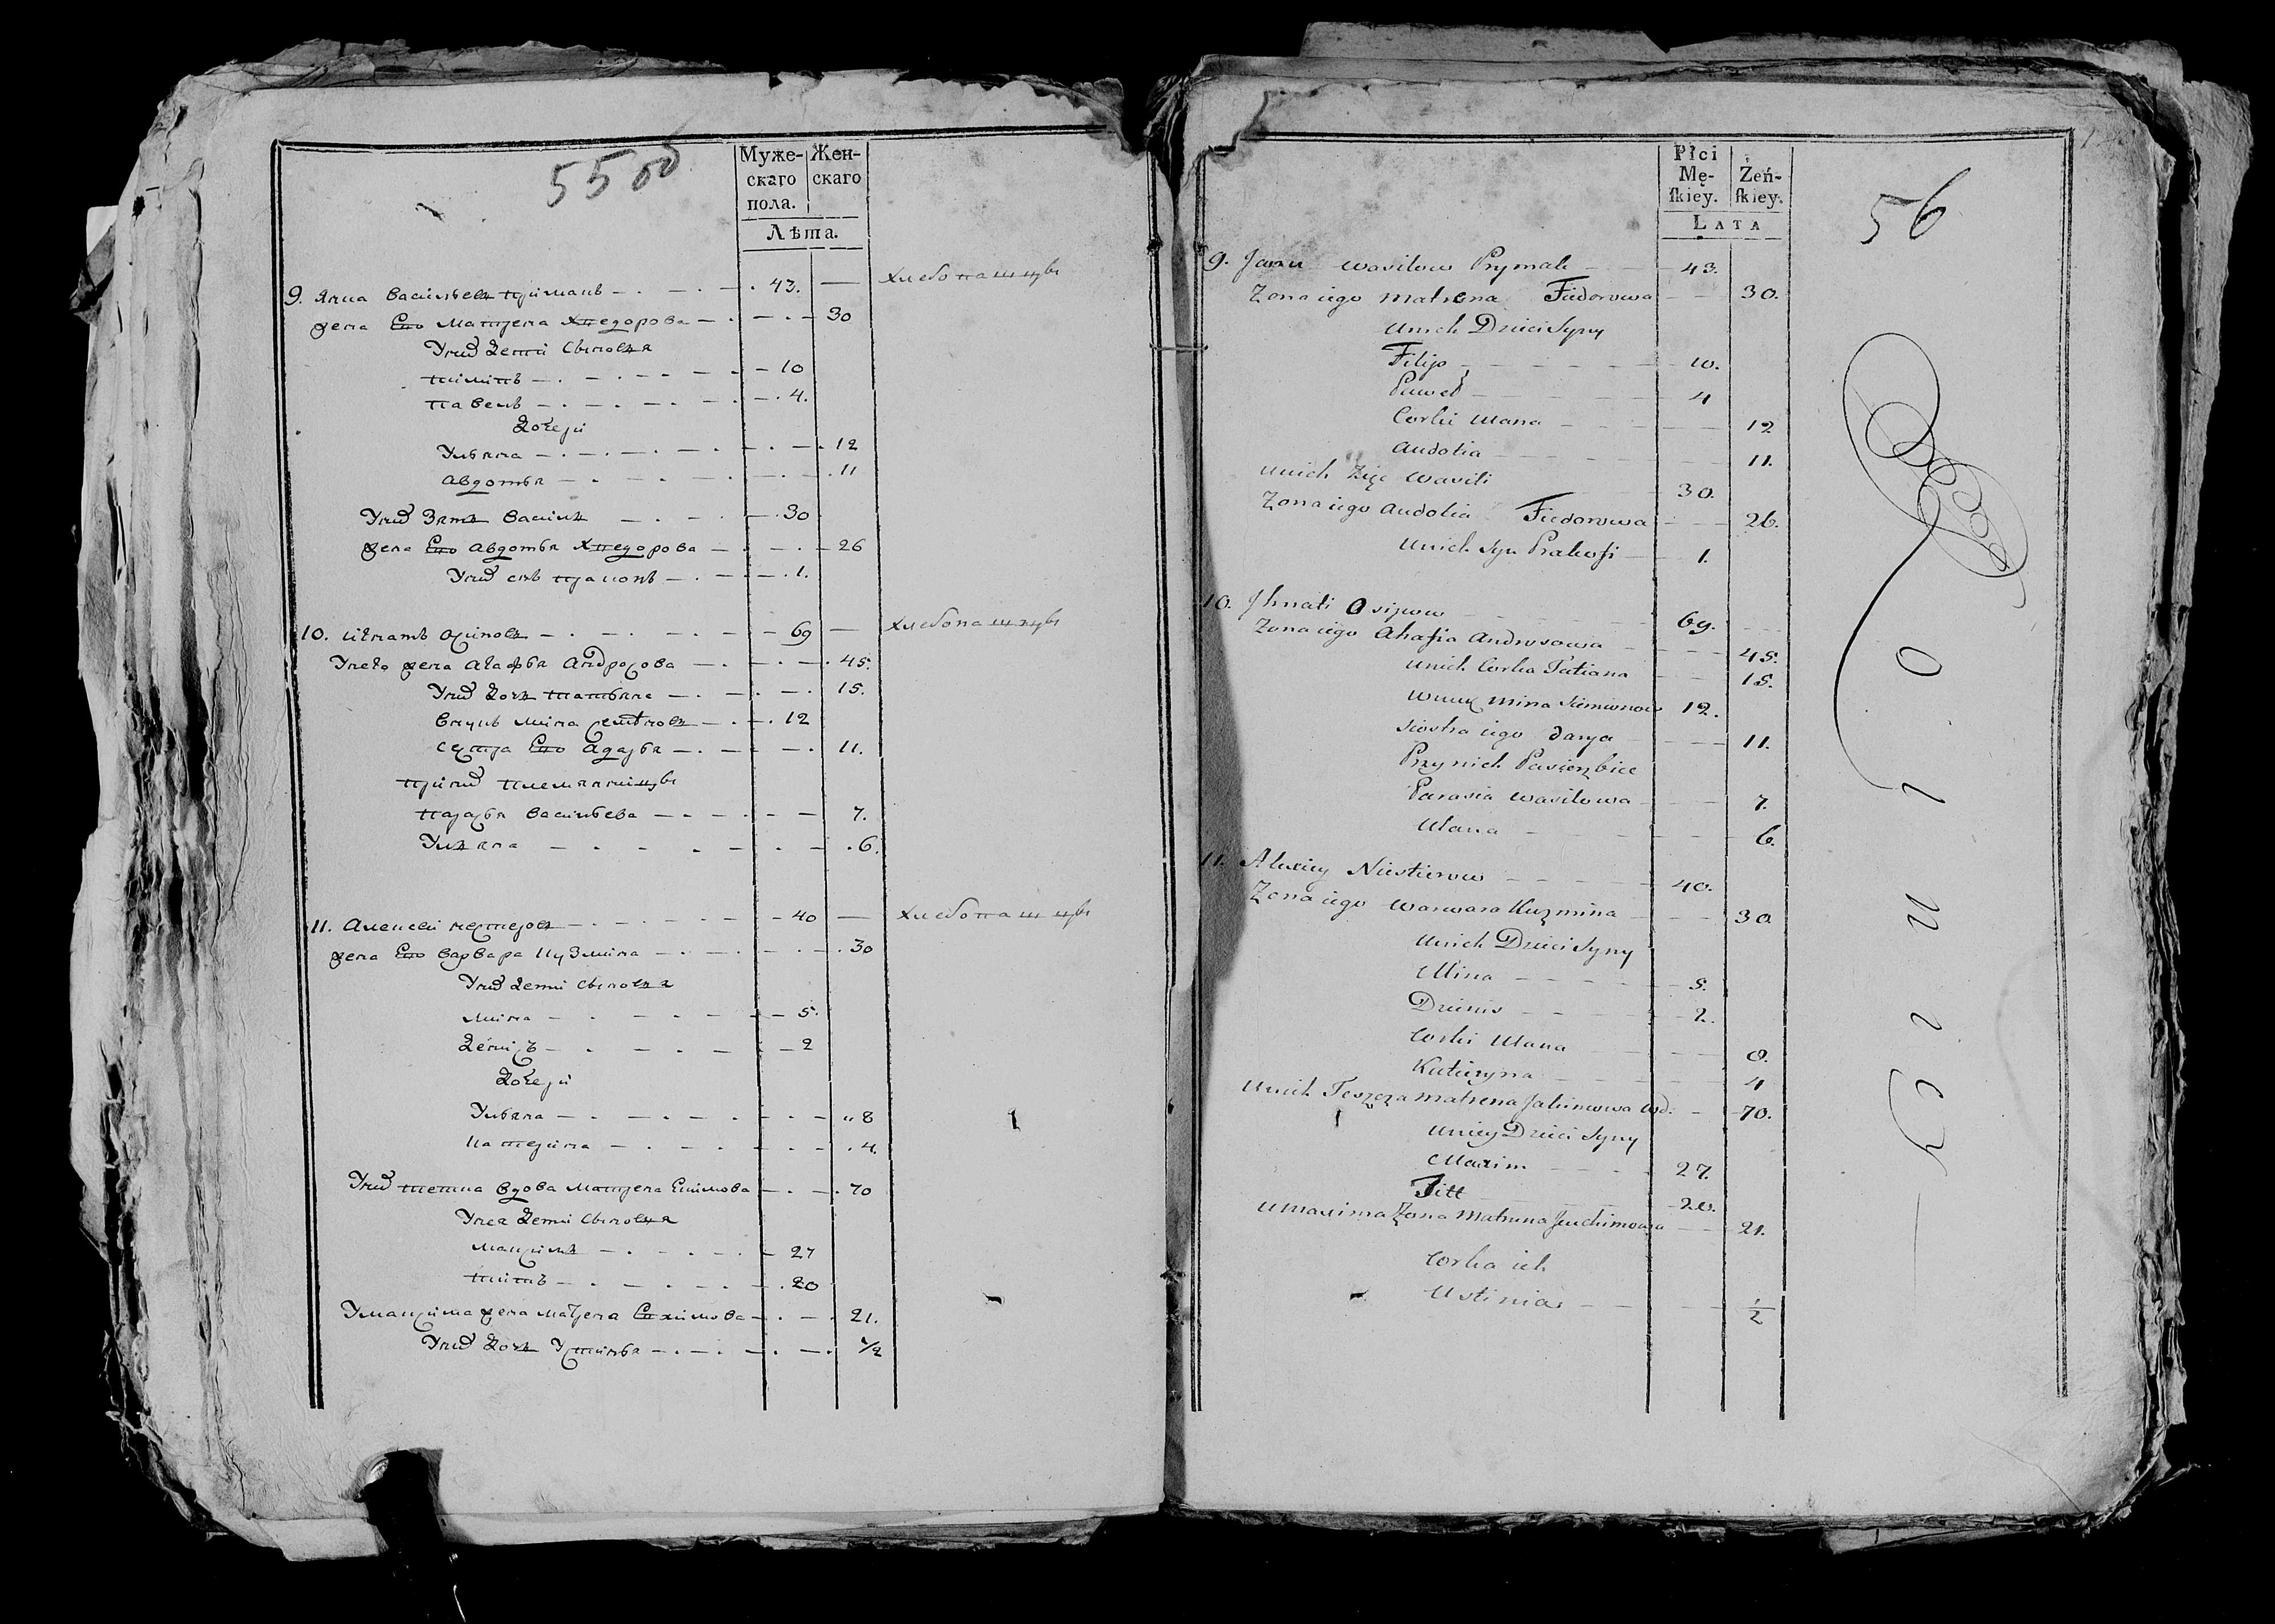 55 об
Муже-
скаго
пола.
Жен-
скаго
Лѣта.
9. Янка Васильевъ примакъ 43. — хлебопашцы
жена Его Матрена Хпедорова 30
У них Дети Сыновья
пилипъ 10
павелъ 4.
Дочери
Ульяна 12
Авдотья 11
У них Зять Василь 30
жена Его Авдотья Хпедорова 26
У них снъ пракопъ 1.
10. Игнатъ Осиповъ 69 — хлебопашцы
У него жена Агафья Андросова 45.
У них Дочь Татьяна 15.
внукъ Мина Семѣновъ 12
сестра Его Дарья 11.
при них племянницы
парасья Васильева 7.
Ульяна 6.
11. Алексей нестеровъ 40 — хлебопашцы
жена Его Варвара Кузмина 30
У них Дети Сыновья
Мина 5.
Денисъ 2
Дочери
Ульяна 8
Катерина 4.
У них тетка вдова Матрена Екимова 70
У нея Дети Сыновья
Максимъ 27
титъ 20
У Максима жена Матрена Еахимова 21.
У них Дочь Устинья 1/2
Płci
Mę-
ſkiey.
Żeń-
ſkiey.
LATA
56
9. Janu Wasilow Prymak 43.
Zona iego Matrena Fiedorowa 30.
U nich Dzieci Syny
Filip 10.
Paweł 4
Corki Ulana 12
Audotia 11.
U nich Zięć Wasili 30.
Zona iego Audotia Fiedorowa 26.
U nich Syn Prakofi 1.
10. Ihnati Osipow 69.
Zona iego Ahafia Androsowa 45.
U nich Corka Tatiana 15.
Wnuk Mina Siemionow 12.
Siostra iego Darya 11.
Przy nich Pasierzbice
Parasia Wasilowa 7.
Ulana 6.
11. Alexiey Niestierow 40.
Zona iego Warwara Kuzmina 30.
U nich Dzieci Syny
Mina 5.
Dzienis 2.
Corki Ulana 8.
Katieryna 4
U nich Teszcza Matrena Jakimowa Wd. 70.
U niey Dzieci Syny
Maxim 27.
Titt 20.
U Maxima Zona Matruna Jeuchimowa 21.
Corka ich
Ustinia 1/2